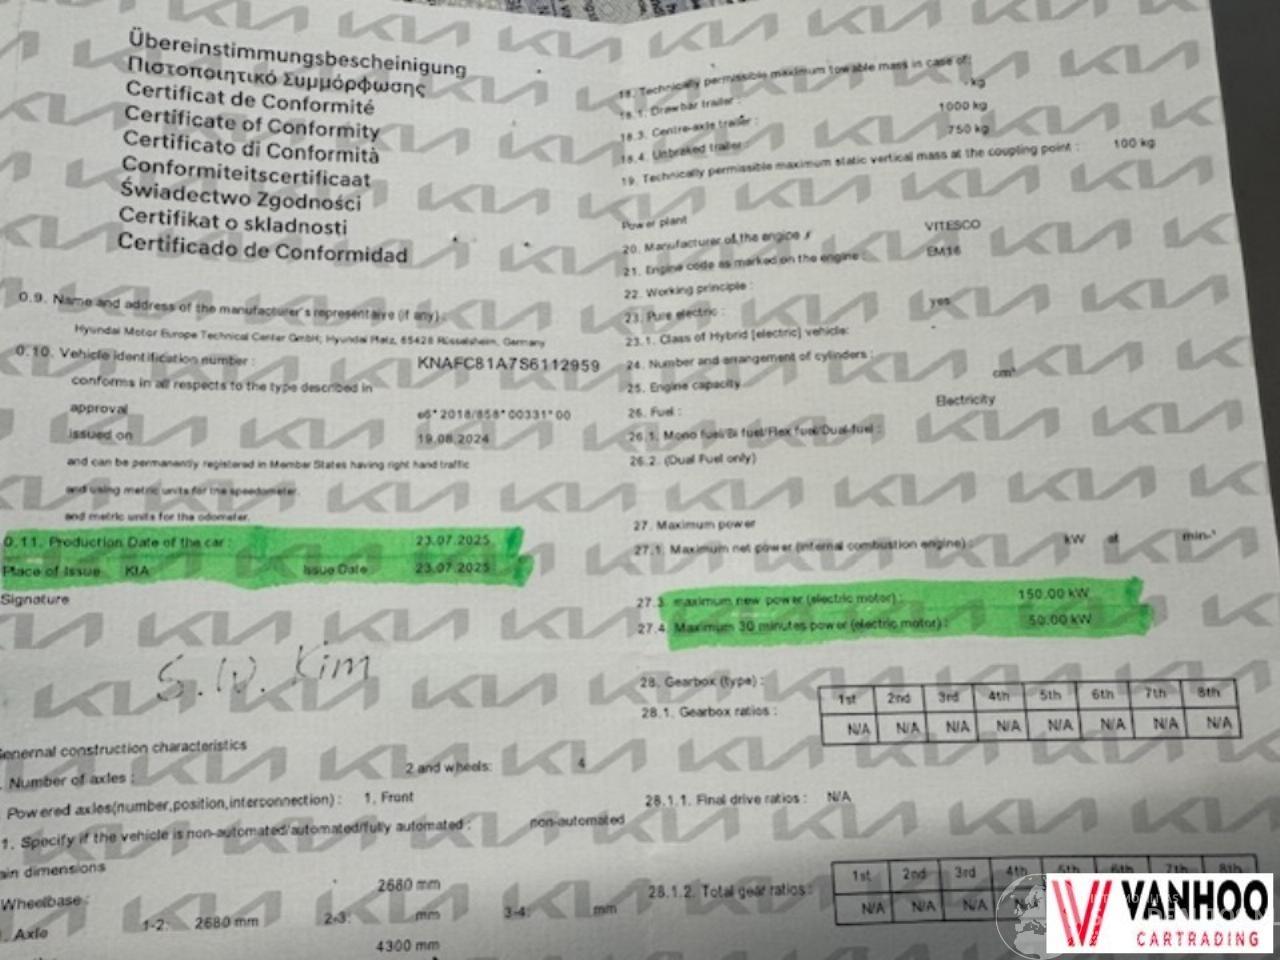 Übereinstimmungsbescheinigung
Πιστοποιητικό Συμμόρφωσης
Certificat de Conformité
Certificate of Conformity
Certificato di Conformità
Conformiteitscertificaat
Świadectwo Zgodności
Certifikat o skladnosti
Certificado de Conformidad
0.9. Name and address of the manufacturer's representaive (if any)
Hyundai Motor Europe Technical Center GmbH; Hyundai Platz, 65428 Rüsselsheim, Germany
0.10. Vehicle identification number : KNAFC81A7S6112959
conforms in all respects to the type described in
approval e6*2018/858*00331*00
issued on 19.08.2024
and can be permanently registered in Member States having right hand traffic
and using metric units for the speedometer.
and metric units for the odometer.
0.11. Production Date of the car : 23.07.2025
Place of Issue KIA Issue Date 23.07.2025
Signature
S. W. Kim
Genernal construction characteristics
Number of axles : 2 and wheels: 4
Powered axles(number,position,interconnection) : 1. Front
1. Specify if the vehicle is non-automated/automated/fully automated : non-automated
dimensions
Wheelbase : 2680 mm
Axle 1-2: 2680 mm 2-3: mm 3-4: mm
4300 mm
18. Technically permissible maximum towable mass in case of:
18.1. Drawbar trailer : - kg
18.3. Centre-axle trailer : 1000 kg
18.4. Unbraked trailer : 750 kg
19. Technically permissible maximum static vertical mass at the coupling point : 100 kg
Power plant
20. Manufacturer of the engine : VITESCO
21. Engine code as marked on the engine : EM16
22. Working principle :
23. Pure electric : yes
23.1. Class of Hybrid [electric] vehicle:
24. Number and arrangement of cylinders :
25. Engine capacity cm³
26. Fuel : Electricity
26.1. Mono fuel/Bi fuel/Flex fuel/Dual-fuel :
26.2. (Dual Fuel only)
27. Maximum power
27.1. Maximum net power (internal combustion engine) : kW at min-¹
27.3. maximum new power (electric motor) : 150.00 kW
27.4. Maximum 30 minutes power (electric motor) : 50.00 kW
28. Gearbox (type) :
28.1. Gearbox ratios :
1st 2nd 3rd 4th 5th 6th 7th 8th
N/A N/A N/A N/A N/A N/A N/A N/A
28.1.1. Final drive ratios : N/A
28.1.2. Total gear ratios :
1st 2nd 3rd 4th 5th 6th 7th 8th
N/A N/A N/A N/A
VANHOO
CARTRADING